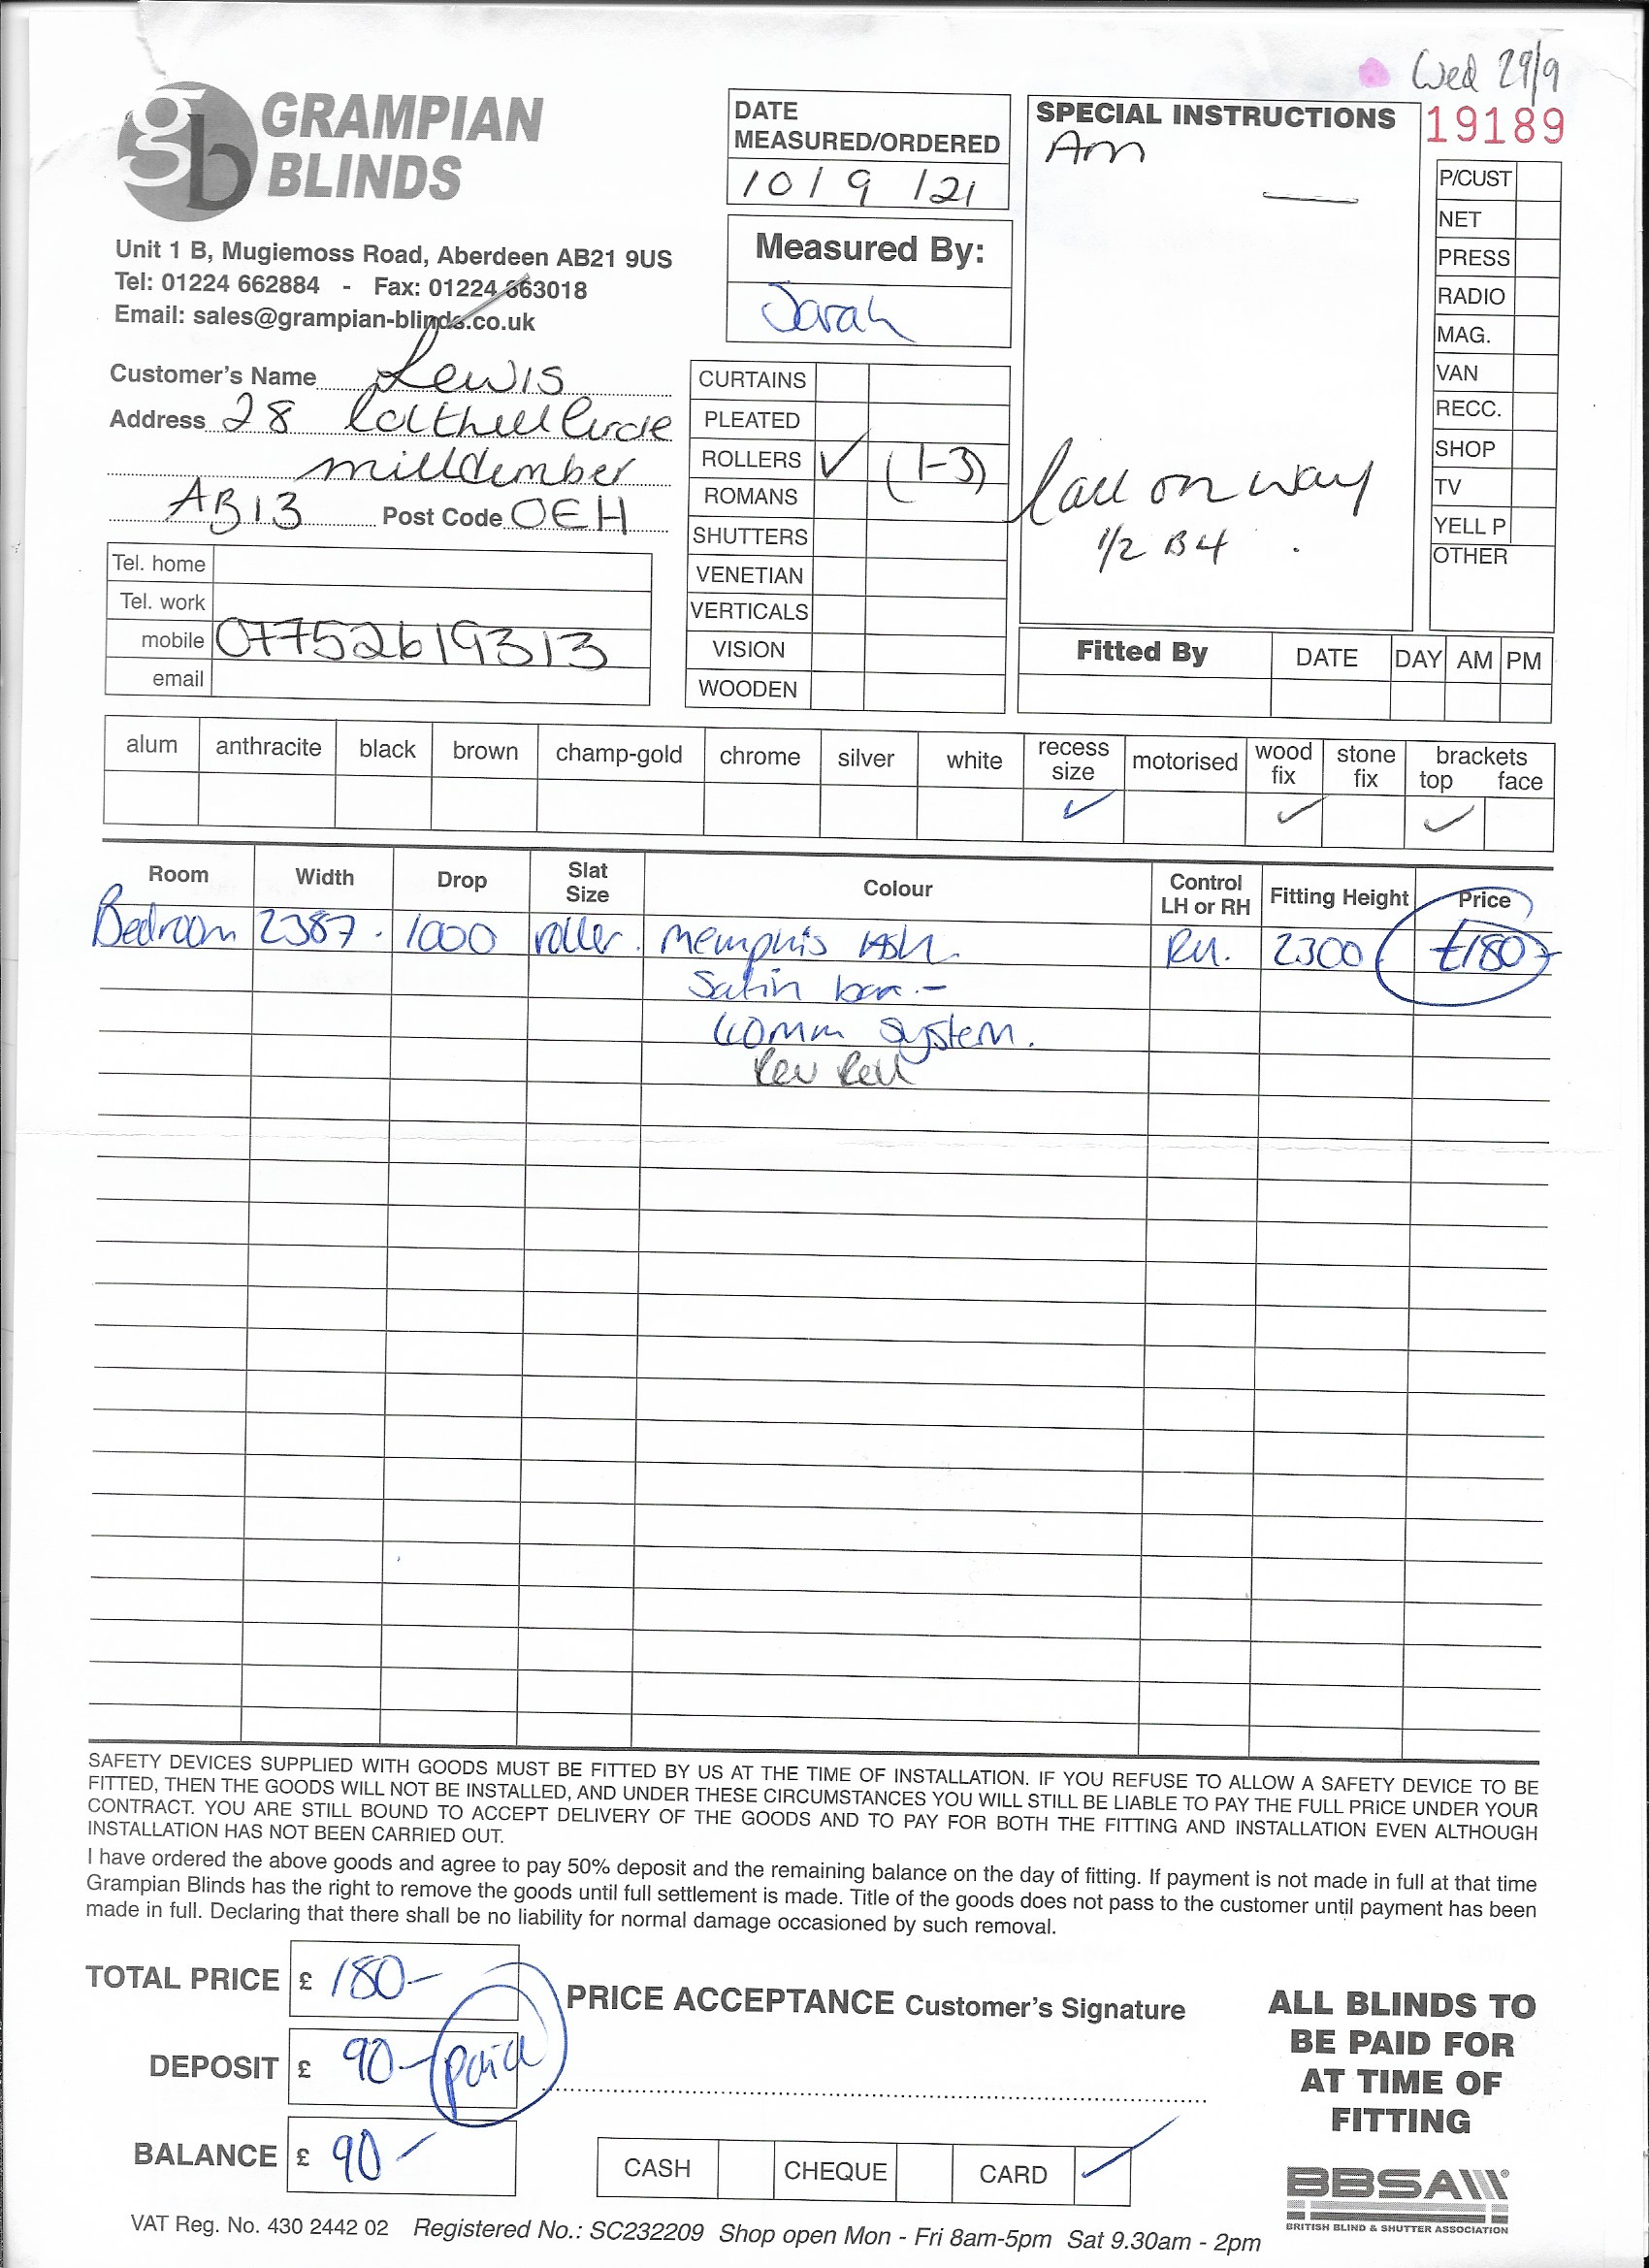 Wed 29/9
gb GRAMPIAN
BLINDS
Unit 1 B, Mugiemoss Road, Aberdeen AB21 9US
Tel: 01224 662884 - Fax: 01224 663018
Email: sales@grampian-blinds.co.uk
DATE
MEASURED/ORDERED
10/9/21
Measured By:
Sarah
SPECIAL INSTRUCTIONS
Am
Call on way
1/2 B4
19189
P/CUST
NET
PRESS
RADIO
MAG.
VAN
RECC.
SHOP
TV
YELL P
OTHER
Customer's Name Lewis
Address 28 Circle
AB13 Post Code 0EH
Tel. home
Tel. work
mobile 07752619313
email
CURTAINS
PLEATED
ROLLERS ✓ (1-3)
ROMANS
SHUTTERS
VENETIAN
VERTICALS
VISION
WOODEN
Fitted By DATE DAY AM PM
alum anthracite black brown champ-gold chrome silver white recess size motorised wood fix stone fix brackets top face
✓ ✓ ✓
Room Width Drop Slat Size Colour Control LH or RH Fitting Height Price
Bedroom 2387. 1000 roller. Memphis Ash RH. 2300 £180-
Satin bar.-
40mm system.
Rev Roll
SAFETY DEVICES SUPPLIED WITH GOODS MUST BE FITTED BY US AT THE TIME OF INSTALLATION. IF YOU REFUSE TO ALLOW A SAFETY DEVICE TO BE
FITTED, THEN THE GOODS WILL NOT BE INSTALLED, AND UNDER THESE CIRCUMSTANCES YOU WILL STILL BE LIABLE TO PAY THE FULL PRICE UNDER YOUR
CONTRACT. YOU ARE STILL BOUND TO ACCEPT DELIVERY OF THE GOODS AND TO PAY FOR BOTH THE FITTING AND INSTALLATION EVEN ALTHOUGH
INSTALLATION HAS NOT BEEN CARRIED OUT.
I have ordered the above goods and agree to pay 50% deposit and the remaining balance on the day of fitting. If payment is not made in full at that time
Grampian Blinds has the right to remove the goods until full settlement is made. Title of the goods does not pass to the customer until payment has been
made in full. Declaring that there shall be no liability for normal damage occasioned by such removal.
TOTAL PRICE £ 180-
DEPOSIT £ 90- paid
BALANCE £ 90-
PRICE ACCEPTANCE Customer's Signature
CASH CHEQUE CARD ✓
ALL BLINDS TO
BE PAID FOR
AT TIME OF
FITTING
BBSA
BRITISH BLIND & SHUTTER ASSOCIATION
VAT Reg. No. 430 2442 02 Registered No.: SC232209 Shop open Mon - Fri 8am-5pm Sat 9.30am - 2pm